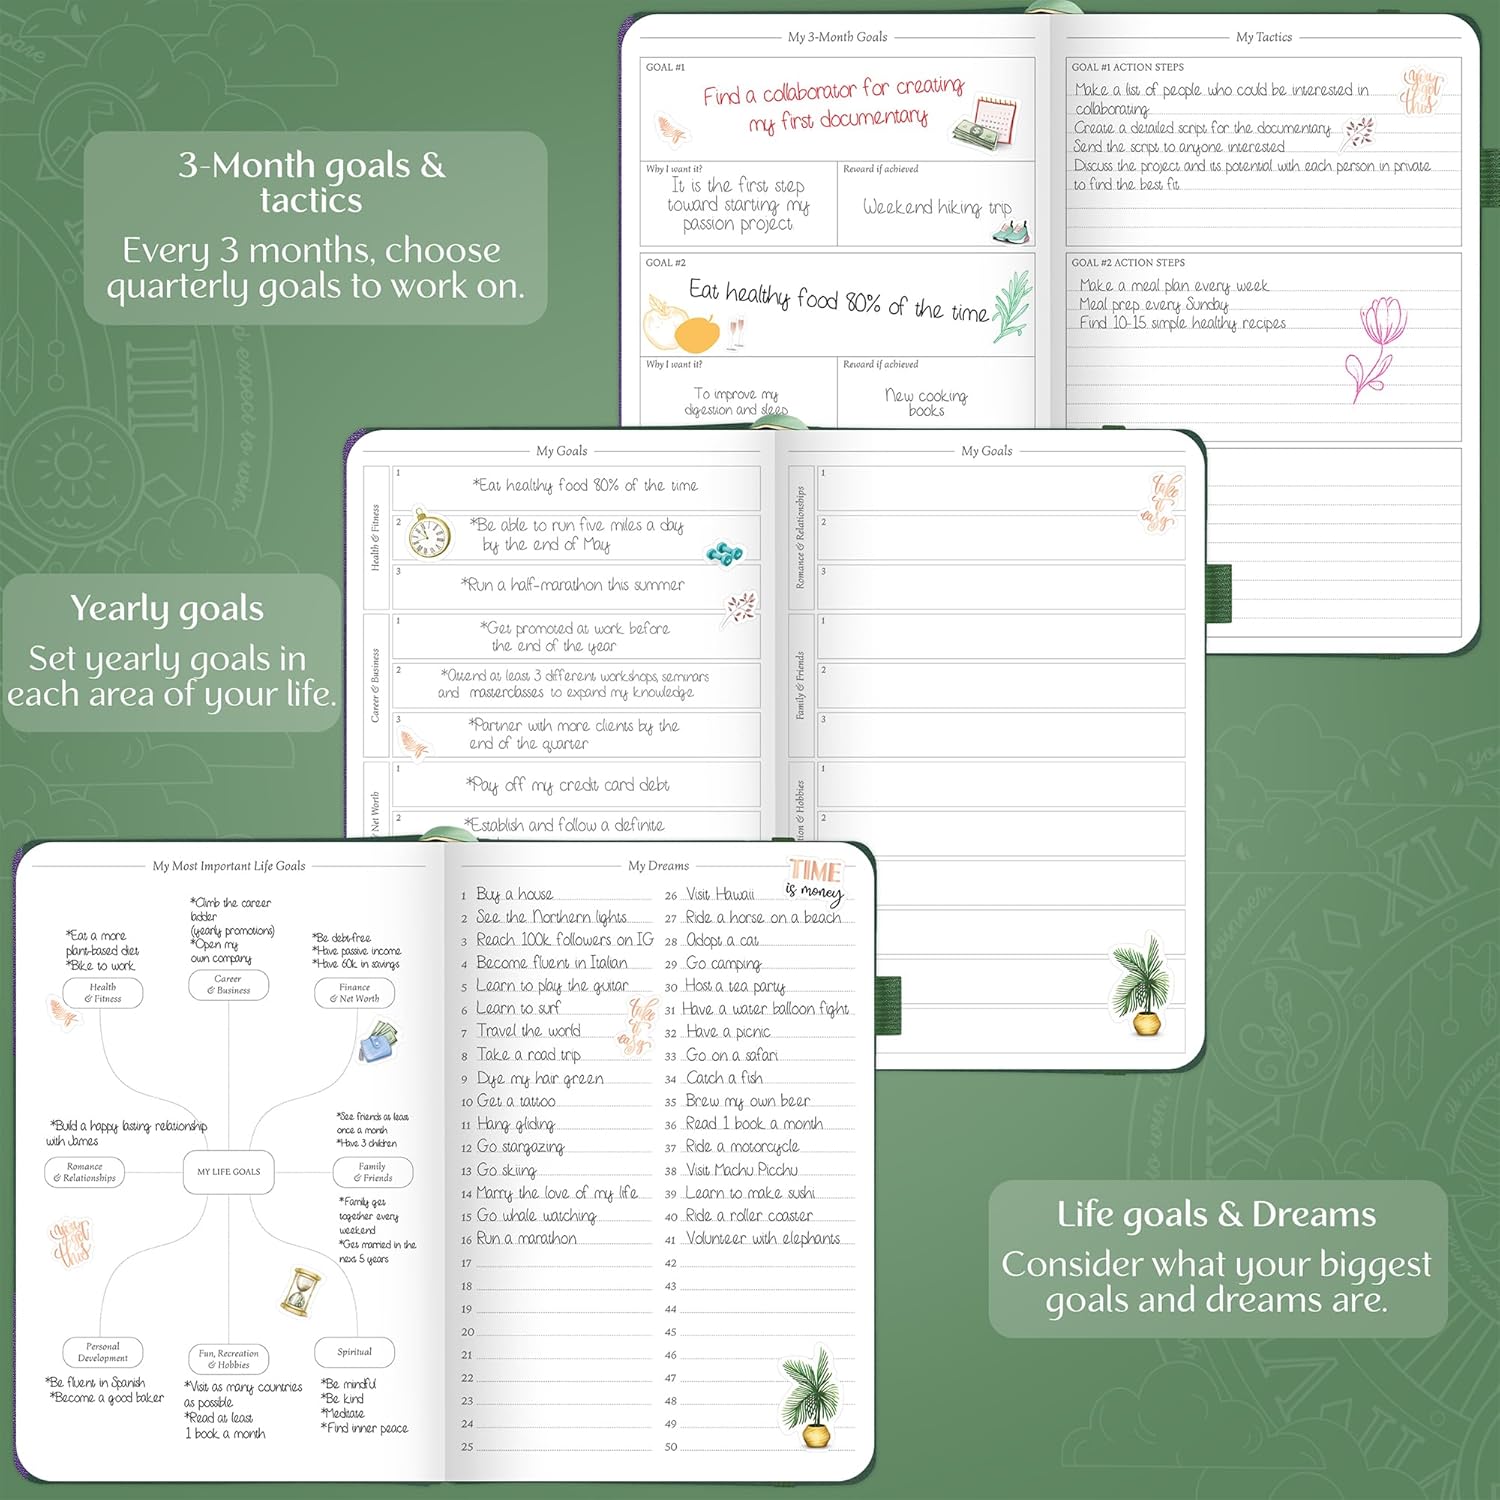 3-Month goals &
tactics
Every 3 months, choose
quarterly goals to work on.
My 3-Month Goals
GOAL #1
Find a collaborator for creating
my first documentary
Why I want it?
It is the first step
toward starting my
passion project
Reward if achieved
Weekend hiking trip
GOAL #2
Eat healthy food 80% of the time
Why I want it?
To improve my
digestion and sleep
Reward if achieved
New cooking
books
My Tactics
GOAL #1 ACTION STEPS
you
got
this
Make a list of people who could be interested in
collaborating
Create a detailed script for the documentary
Send the script to anyone interested
Discuss the project and its potential with each person in private
to find the best fit
GOAL #2 ACTION STEPS
Make a meal plan every week
Meal prep every Sunday
Find 10-15 simple healthy recipes
Yearly goals
Set yearly goals in
each area of your life.
My Goals
Health & Fitness
1
*Eat healthy food 80% of the time
2
*Be able to run five miles a day
by the end of May
3
*Run a half-marathon this summer
Career & Business
1
*Get promoted at work before
the end of the year
2
*Attend at least 3 different workshops, seminars
and masterclasses to expand my knowledge
3
*Partner with more clients by the
end of the quarter
& Net Worth
1
*Pay off my credit card debt
2
*Establish and follow a definite
My Goals
Romance & Relationships
1
2
3
take
it
easy
Family & Friends
1
2
3
& Hobbies
1
2
My Most Important Life Goals
*Eat a more
plant-based diet
*Bike to work
Health
& Fitness
*Climb the career
ladder
(yearly promotions)
*Open my
own company
Career
& Business
*Be debt-free
*Have passive income
*Have 60k in savings
Finance
& Net Worth
*Build a happy lasting relationship
with James
Romance
& Relationships
MY LIFE GOALS
*See friends at least
once a month
*Have 3 children
Family
& Friends
*Family get
together every
weekend
*Get married in the
next 5 years
you
got
this
Personal
Development
*Be fluent in Spanish
*Become a good baker
Fun, Recreation
& Hobbies
*Visit as many countries
as possible
*Read at least
1 book a month
Spiritual
*Be mindful
*Be kind
*Meditate
*Find inner peace
My Dreams
TIME
is money
1 Buy a house
2 See the Northern lights
3 Reach 100k followers on IG
4 Become fluent in Italian
5 Learn to play the guitar
6 Learn to surf
7 Travel the world
8 Take a road trip
9 Dye my hair green
10 Get a tattoo
11 Hang gliding
12 Go stargazing
13 Go skiing
14 Marry the love of my life
15 Go whale watching
16 Run a marathon
17
18
19
20
21
22
23
24
25
take
it
easy
26 Visit Hawaii
27 Ride a horse on a beach
28 Adopt a cat
29 Go camping
30 Host a tea party
31 Have a water balloon fight
32 Have a picnic
33 Go on a safari
34 Catch a fish
35 Brew my own beer
36 Read 1 book a month
37 Ride a motorcycle
38 Visit Machu Picchu
39 Learn to make sushi
40 Ride a roller coaster
41 Volunteer with elephants
42
43
44
45
46
47
48
49
50
Life goals & Dreams
Consider what your biggest
goals and dreams are.